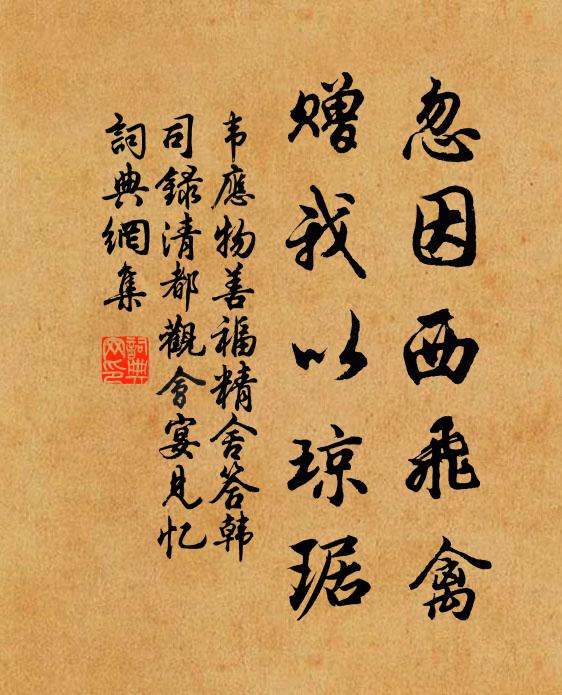 忽因西飛禽
赠我以琼琚
韦應物善福精舍答韩
司録清都觀會宴見忆
詞典網集
詞典
网印